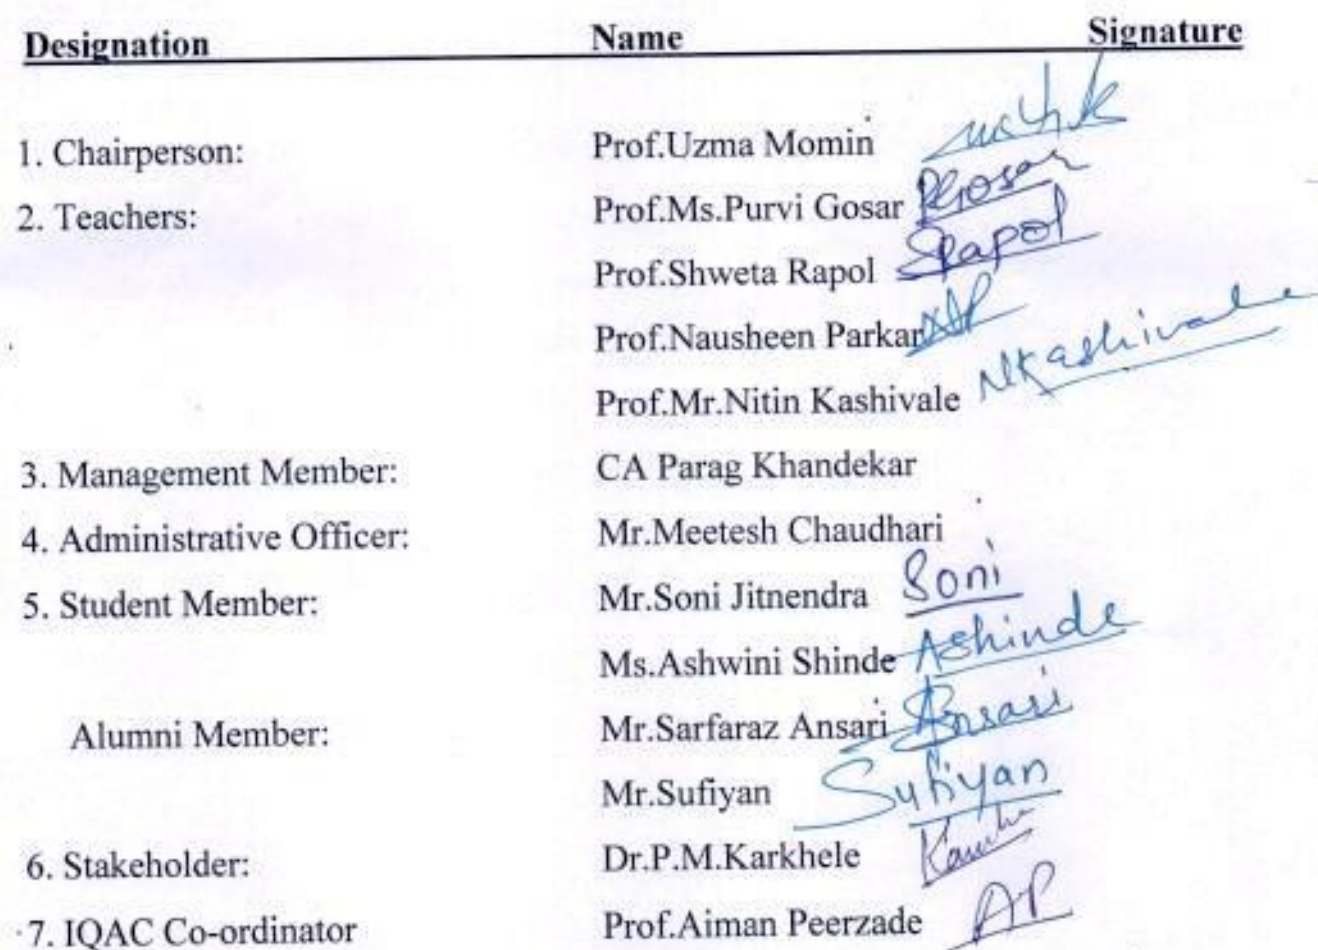 Designation Name Signature
1. Chairperson: Prof.Uzma Momin
2. Teachers: Prof.Ms.Purvi Gosar PGosar
Prof.Shweta Rapol SRapol
Prof.Nausheen Parkar NAP
Prof.Mr.Nitin Kashivale NKashivale
3. Management Member: CA Parag Khandekar
4. Administrative Officer: Mr.Meetesh Chaudhari
5. Student Member: Mr.Soni Jitnendra Soni
Ms.Ashwini Shinde AShinde
Alumni Member: Mr.Sarfaraz Ansari Ansari
Mr.Sufiyan Sufiyan
6. Stakeholder: Dr.P.M.Karkhele
7. IQAC Co-ordinator Prof.Aiman Peerzade AP